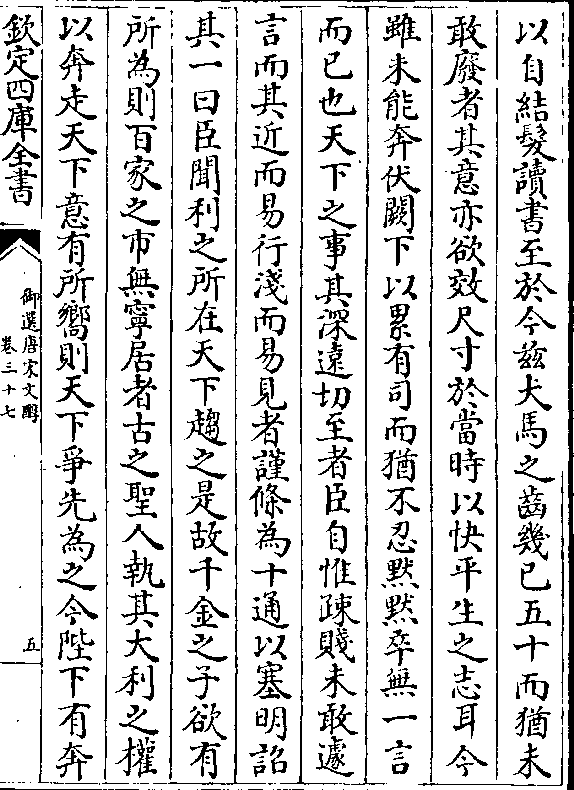 以自結髮讀書至於今茲犬馬之齒幾已五十而猶未
敢廢者其意亦欲效尺寸於當時以快平生之志耳今
雖未能奔伏闕下以累有司而猶不忍默默卒無一言
而已也天下之事其深遠切至者臣自惟疎賤未敢遽
言而其近而易行淺而易見者謹條為十通以塞明詔
其一曰臣聞利之所在天下趨之是故千金之子欲有
所為則百家之市無寧居者古之聖人執其大利之權
以奔走天下意有所嚮則天下爭先為之今陛下有奔
欽定四庫全書
御選唐宋文醇
卷三十七
五